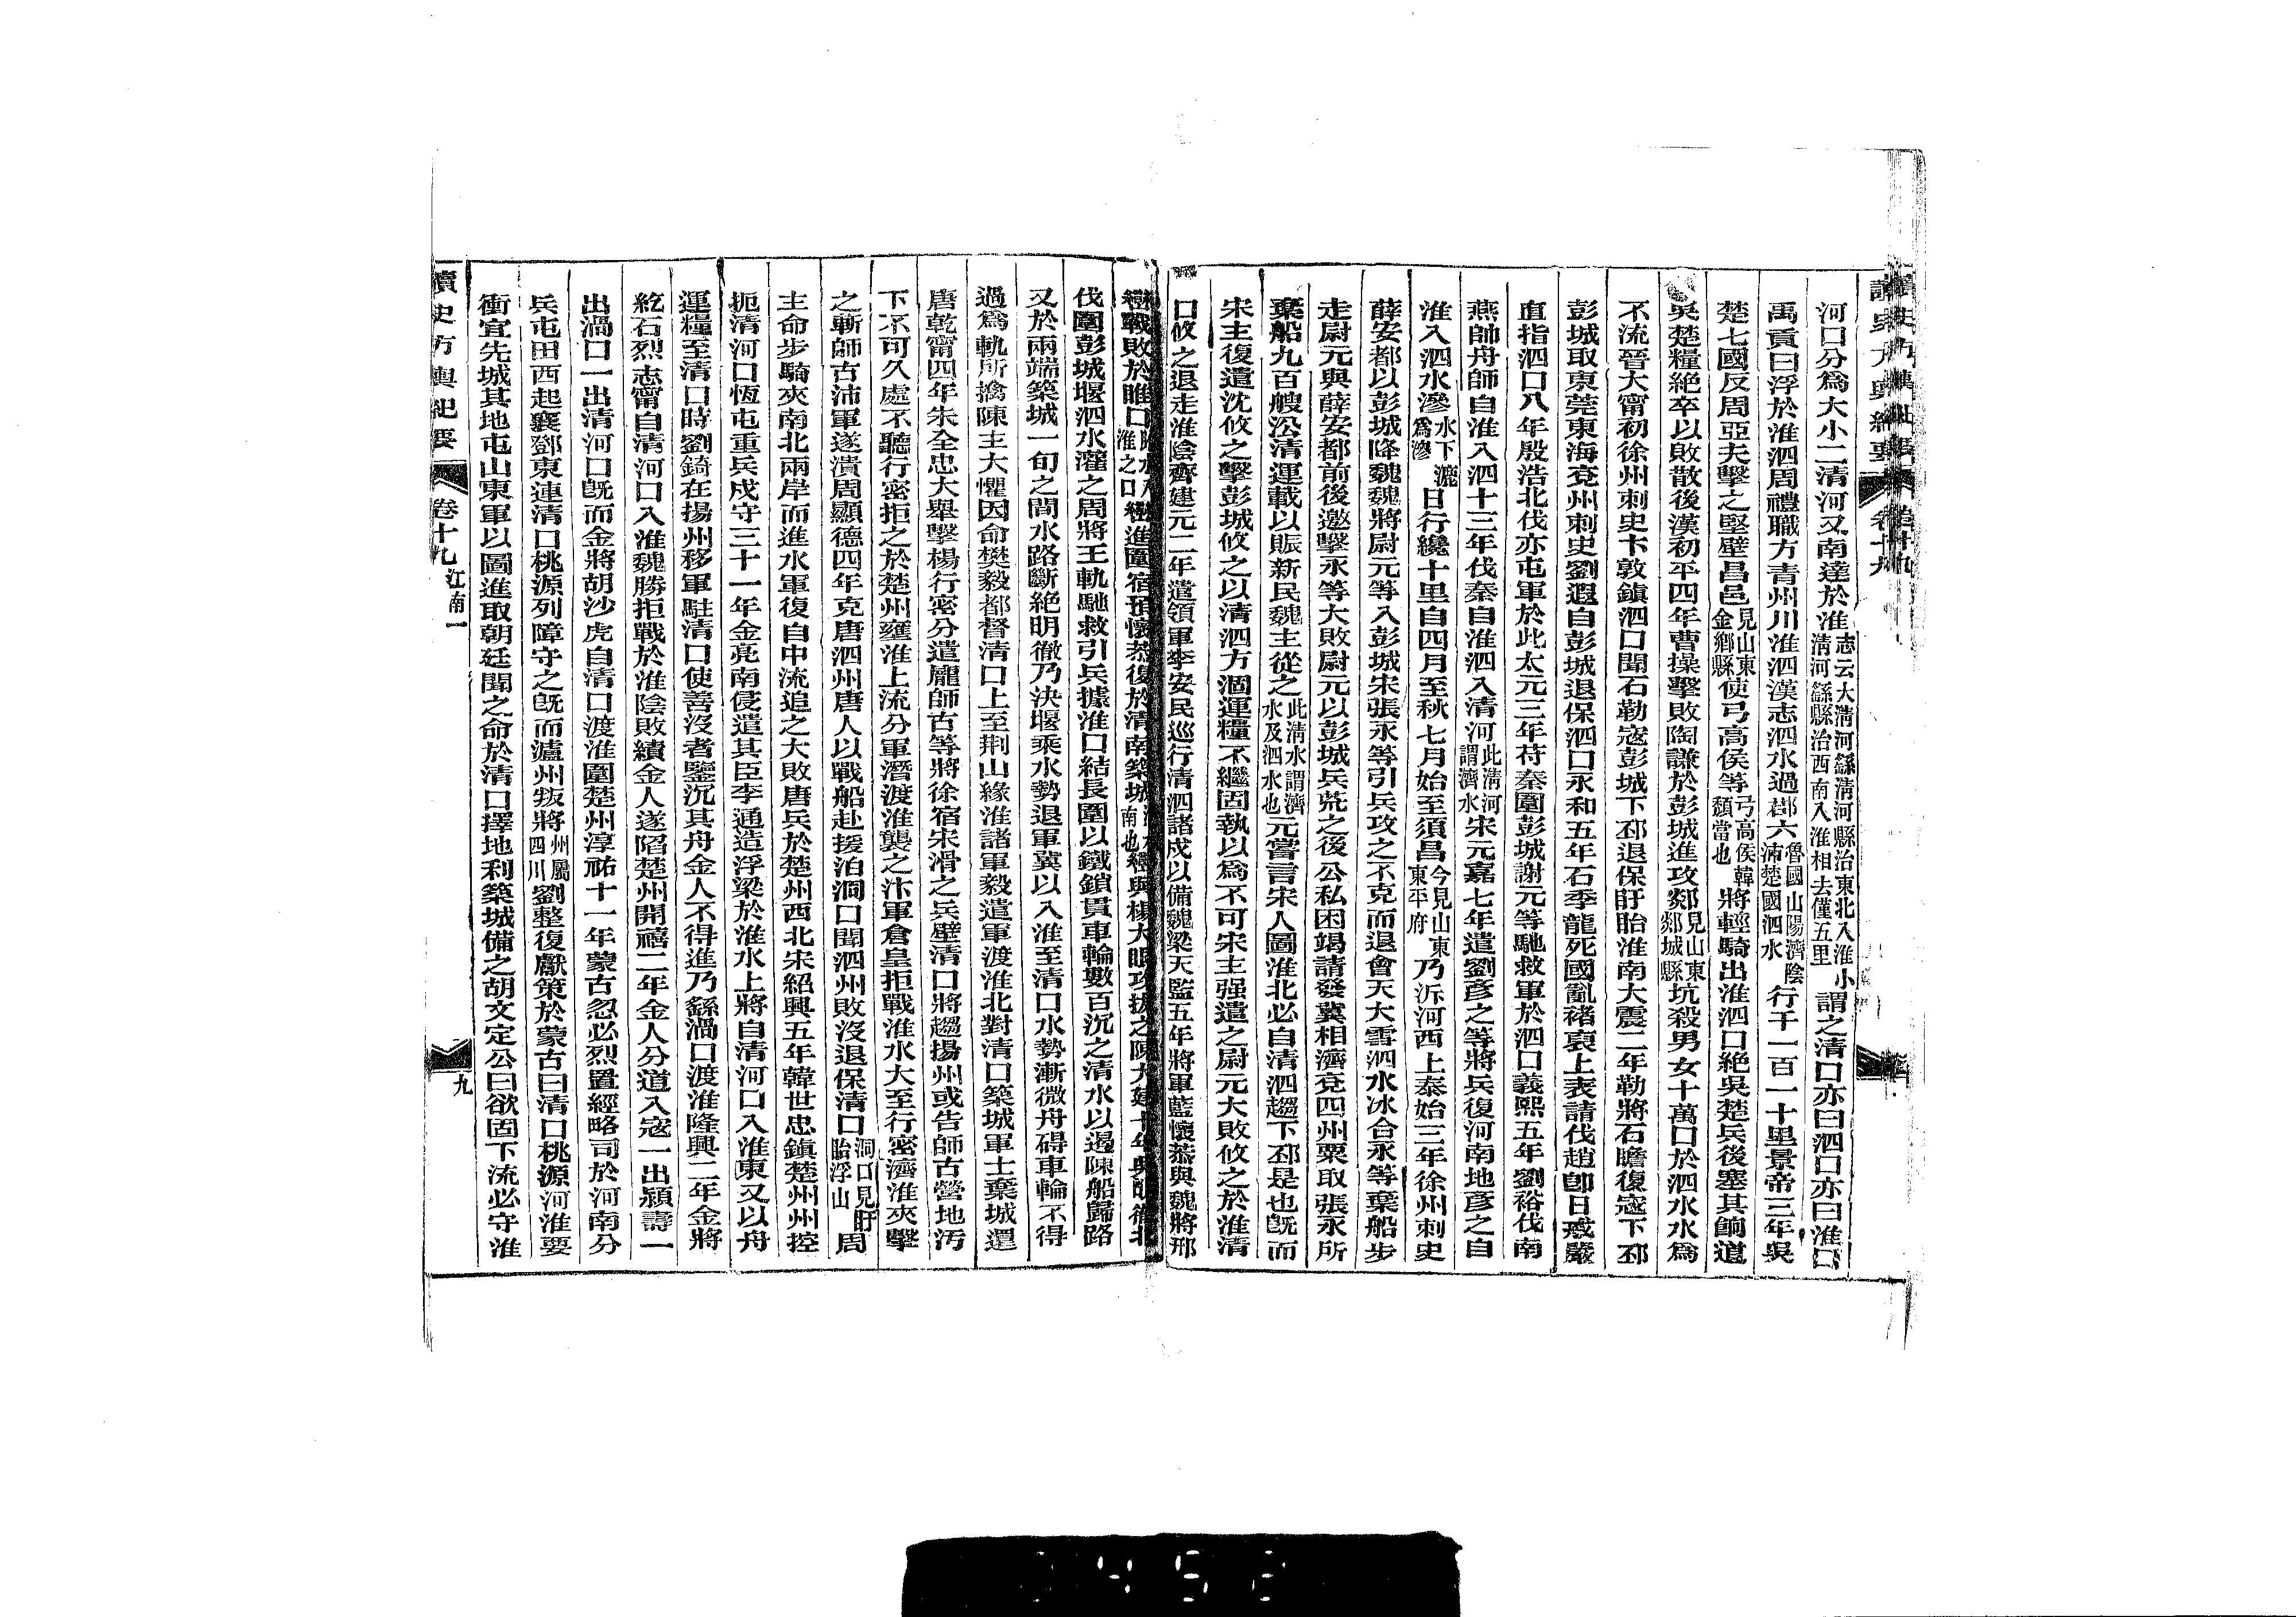 河口分爲大小二淸河又南達於淮志云大淸河繇淸河縣治東北入淮小淸河繇縣治西南入淮相去僅五里謂之淸口亦曰泗口亦曰淮口
禹貢曰浮於淮泗周禮職方靑州川淮泗漢志泗水過郡六魯國山陽濟陰沛楚國泗水行千一百一十里景帝三年吳
楚七國反周亞夫擊之堅壁昌邑見山東金鄉縣使弓高侯等弓高侯韓頹當也將輕騎出淮泗口絕吳楚兵後塞其餉道
吳楚糧絕卒以敗散後漢初平四年曹操擊敗陶謙於彭城進攻郯見山東郯城縣坑殺男女十萬口於泗水水爲
不流晉大甯初徐州刺史卞敦鎭泗口聞石勒寇彭城下邳退保盱眙淮南大震二年勒將石瞻復寇下邳
彭城取東莞東海兗州刺史劉遐自彭城退保泗口永和五年石季龍死國亂褚裒上表請伐趙卽日戒嚴
直指泗口八年殷浩北伐亦屯軍於此太元三年苻秦圍彭城謝元等馳救軍於泗口義熙五年劉裕伐南
燕帥舟師自淮入泗十三年伐秦自淮泗入淸河此淸河謂濟水宋元嘉七年遣劉彥之等將兵復河南地彥之自
淮入泗水滲水下漉爲滲日行纔十里自四月至秋七月始至須昌今見山東東平府乃泝河西上泰始三年徐州刺史
薛安都以彭城降魏魏將尉元等入彭城宋張永等引兵攻之不克而退會天大雪泗水冰合永等棄船步
走尉元與薛安都前後邀擊永等大敗尉元以彭城兵荒之後公私困竭請發冀相濟兗四州粟取張永所
棄船九百艘沿淸運載以賑新民魏主從之此淸水謂濟水及泗水也元嘗言宋人圖淮北必自淸泗趨下邳是也旣而
宋主復遣沈攸之擊彭城攸之以淸泗方涸運糧不繼固執以爲不可宋主强遣之尉元大敗攸之於淮淸
口攸之退走淮陰齊建元二年遣領軍李安民巡行淸泗諸戍以備魏梁天監五年將軍藍懷恭與魏將邢
巒戰敗於睢口睢水入淮之口巒進圍宿預懷恭復於淸南築城淸水南也巒與楊大眼攻拔之陳大建十年吳明徹北
伐圍彭城堰泗水灌之周將王軌馳救引兵據淮口結長圍以鐵鎖貫車輪數百沉之淸水以遏陳船歸路
又於兩端築城一旬之間水路斷絕明徹乃決堰乘水勢退軍冀以入淮至淸口水勢漸微舟碍車輪不得
過爲軌所擒陳主大懼因命樊毅都督淸口上至荆山緣淮諸軍毅遣軍渡淮北對淸口築城軍士棄城還
唐乾甯四年朱全忠大舉擊楊行密分遣龐師古等將徐宿宋滑之兵壁淸口將趨揚州或告師古營地汚
下不可久處不聽行密拒之於楚州壅淮上流分軍潛渡淮襲之汴軍倉皇拒戰淮水大至行密濟淮夾擊
之斬師古沛軍遂潰周顯德四年克唐泗州唐人以戰船赴援泊洞口聞泗州敗沒退保淸口洞口見盱眙浮山周
主命步騎夾南北兩岸而進水軍復自中流追之大敗唐兵於楚州西北宋紹興五年韓世忠鎭楚州州控
扼淸河口恆屯重兵戍守三十一年金亮南侵遣其臣李通造浮梁於淮水上將自淸河口入淮東又以舟
運糧至淸口時劉錡在揚州移軍駐淸口使善沒者鑿沉其舟金人不得進乃繇渦口渡淮隆興二年金將
紇石烈志甯自淸河口入淮魏勝拒戰於淮陰敗績金人遂陷楚州開禧二年金人分道入寇一出潁壽一
出渦口一出淸河口旣而金將胡沙虎自淸口渡淮圍楚州淳祐十一年蒙古忽必烈置經略司於河南分
兵屯田西起襄鄧東連淸口桃源列障守之旣而瀘州叛將州屬四川劉整復獻策於蒙古曰淸口桃源河淮要
衝宜先城其地屯山東軍以圖進取朝廷聞之命於淸口擇地利築城備之胡文定公曰欲固下流必守淮
讀史方輿紀要 卷十九 江南一 九